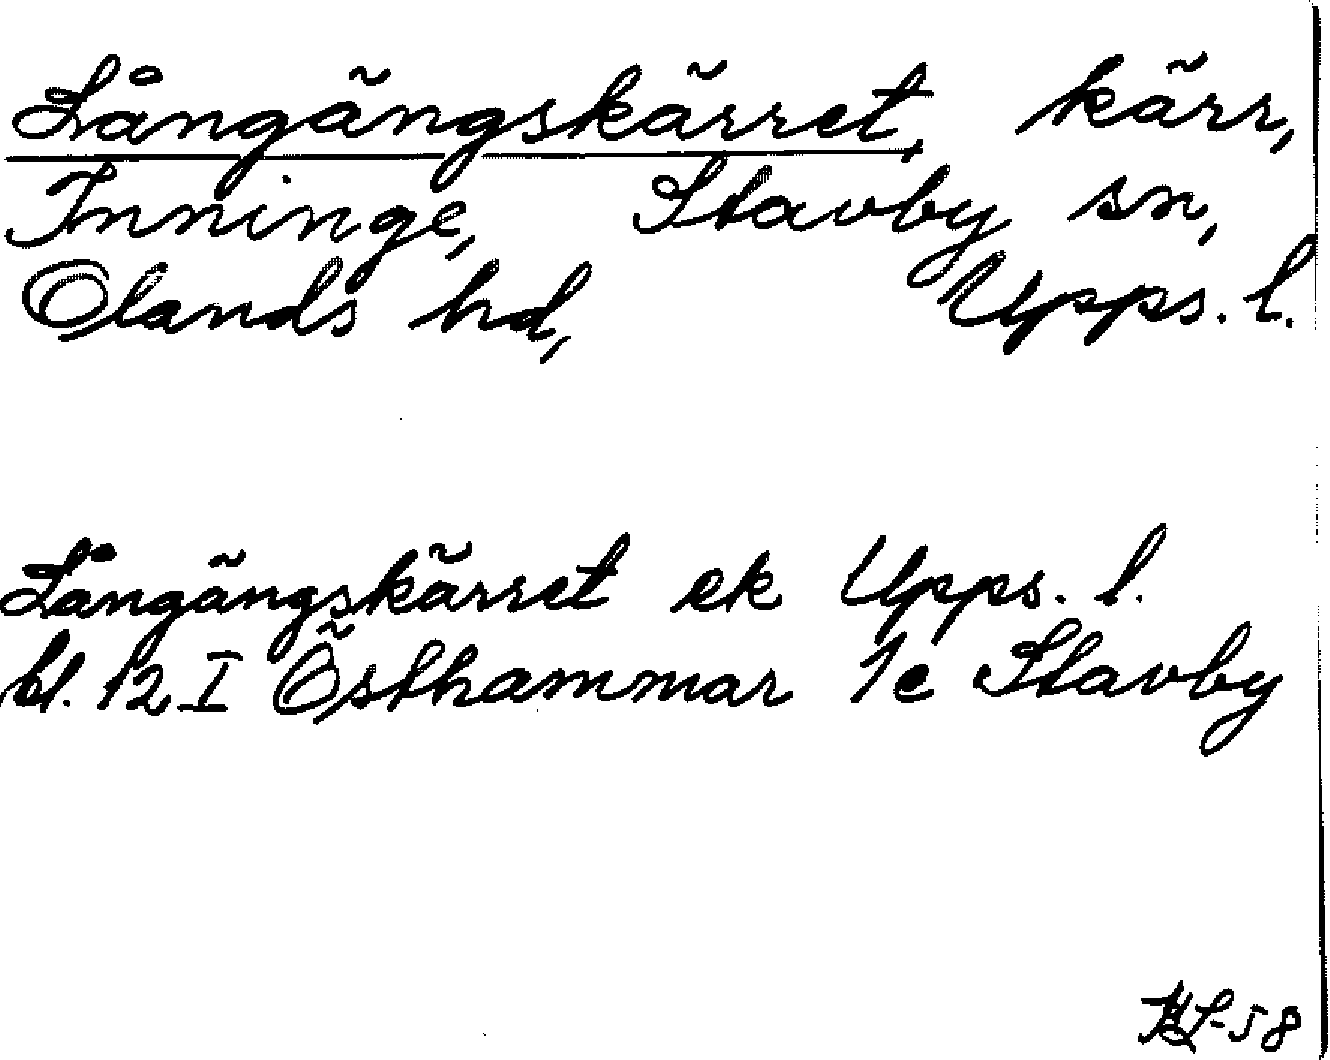 Långängskärret, kärr,
Inninge, Stavby sn,
Olands hd, Upps. l.
Långängskärret ek Upps. l.
bl. 12 I Östhammar 1e Stavby
-58